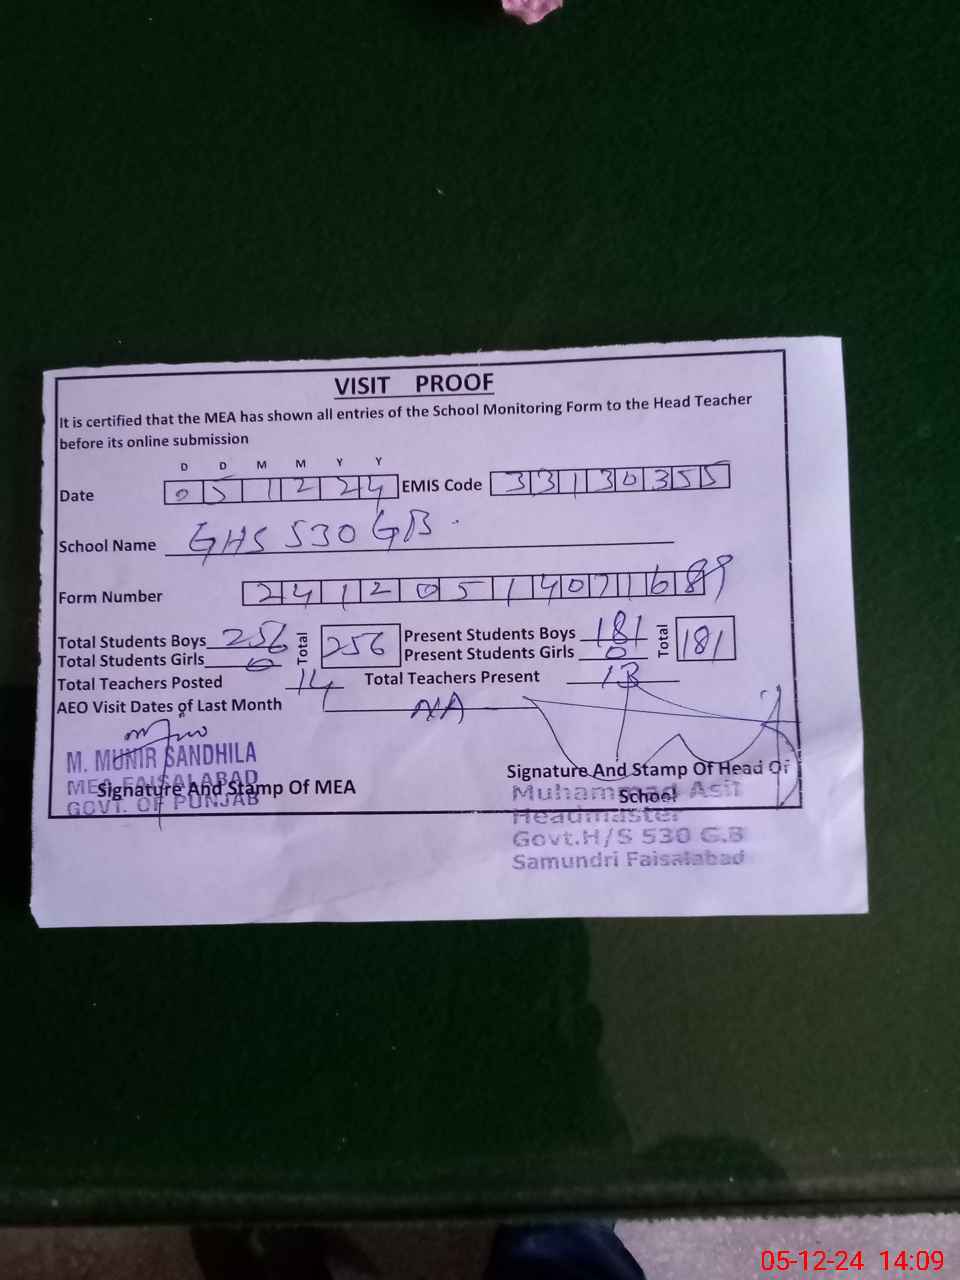 VISIT PROOF
It is certified that the MEA has shown all entries of the School Monitoring Form to the Head Teacher
before its online submission
D D M M Y Y
Date 0 5 1 2 2 4 EMIS Code 3 3 1 3 0 3 5 5
School Name GHS 530 GB
Form Number 2 4 1 2 0 5 1 4 0 7 1 6 89
Total Students Boys 256 Total 256 Present Students Boys 181 Total 181
Total Students Girls 0 Present Students Girls 0
Total Teachers Posted 14 Total Teachers Present 13
AEO Visit Dates of Last Month N/A
M. MUNIR SANDHILA
MEA FAISALABAD
GOVT. OF PUNJAB
Signature And Stamp Of MEA
Signature And Stamp Of Head Of
School
Muhammad Asif
Headmaster
Govt.H/S 530 G.B
Samundri Faisalabad
05-12-24 14:09